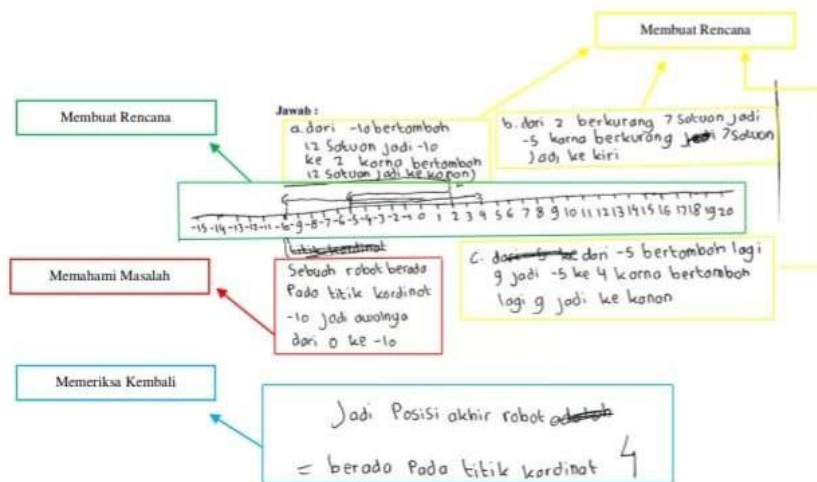 Membuat Rencana
Membuat Rencana
Jawab :
a. dari -10 bertambah
12 Satuan jadi -10
ke 2 karna bertambah
12 Satuan jadi ke kanan)
b. dari 2 berkurang 7 Satuan jadi
-5 karna berkurang jadi 7 Satuan
jadi ke kiri
-15 -14 -13 -12 -11 -10 -9 -8 -7 -6 -5 -4 -3 -2 -1 0 1 2 3 4 5 6 7 8 9 10 11 12 13 14 15 16 17 18 19 20
titik kordinat
Memahami Masalah
Sebuah robot berada
Pada titik kordinat
-10 jadi awalnya
dari 0 ke -10
C. dari -5 ke dari -5 bertambah lagi
9 jadi -5 ke 4 karna bertambah
lagi 9 jadi ke kanan
Memeriksa Kembali
Jadi Posisi akhir robot adalah
= berada Pada titik kordinat 4